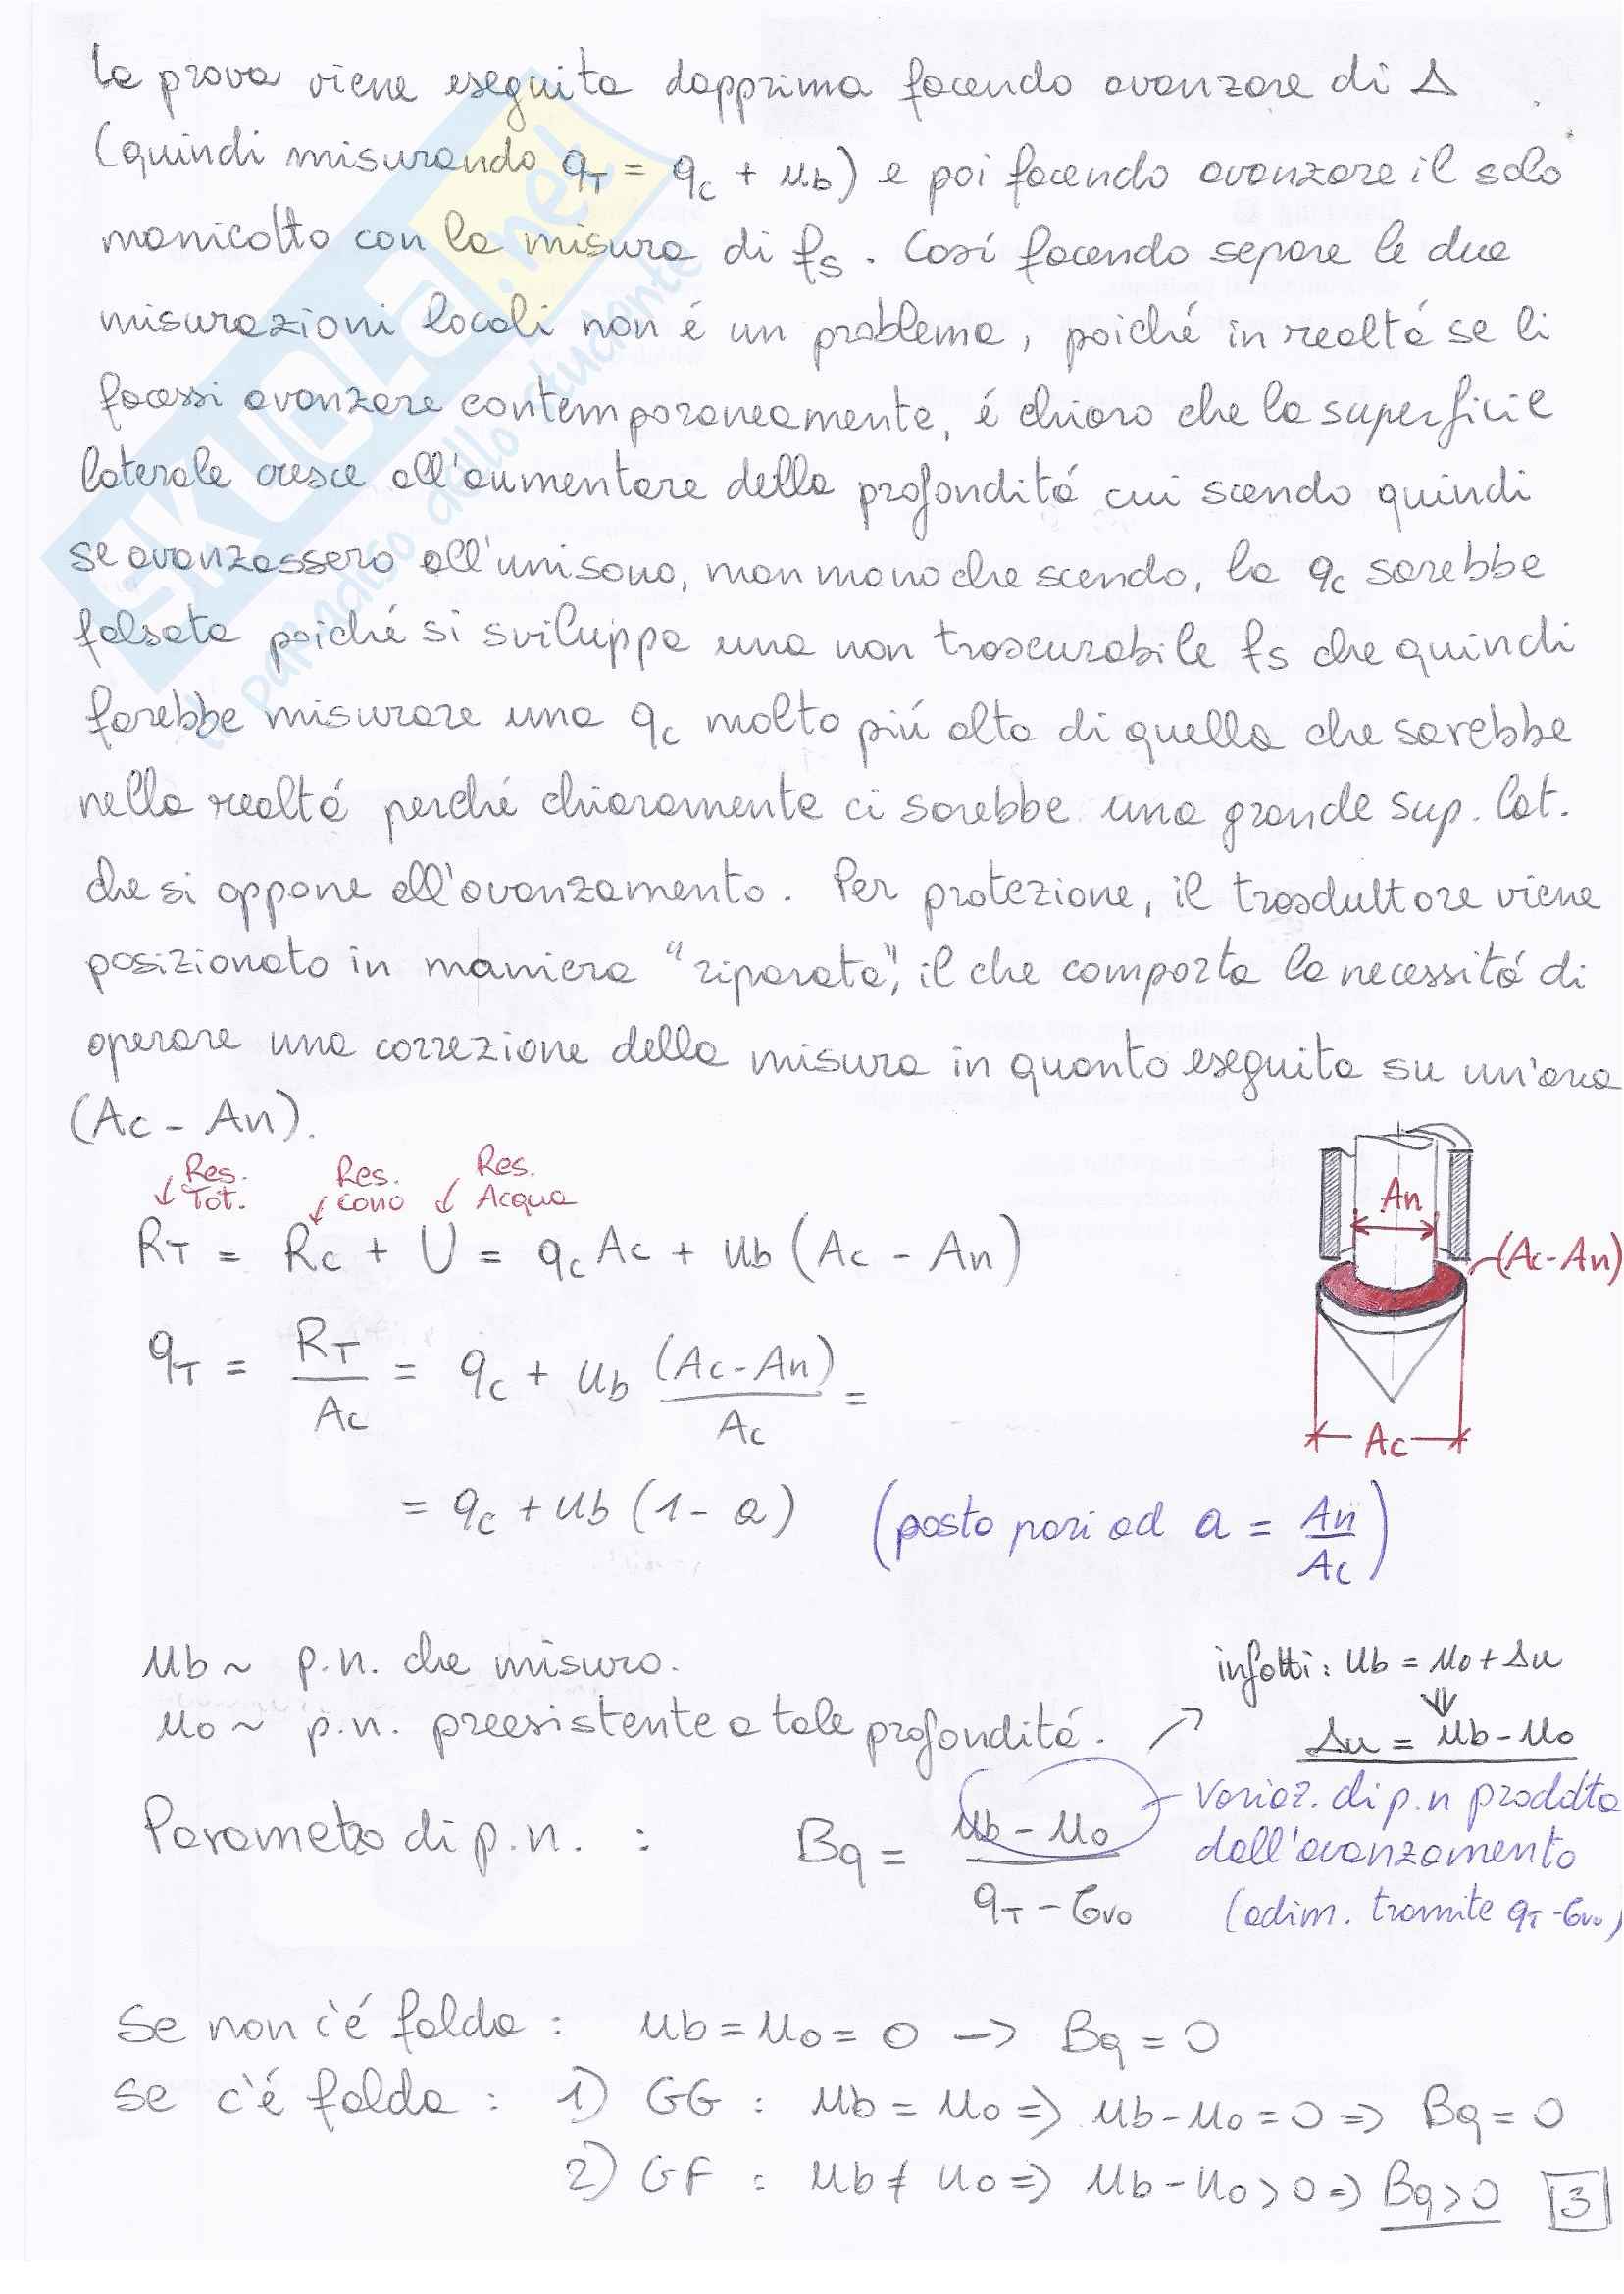 La prova viene eseguita dapprima facendo avanzare di Δ
(quindi misurando qT = qc + ub) e poi facendo avanzare il solo
manicotto con la misura di fs. Così facendo separare le due
misurazioni locali non é un problema, poiché in realtá se li
facessi avanzare contemporaneamente, é chiaro che la superficie
laterale cresce all'aumentare della profonditá cui scendo quindi
se avanzassero all'unisono, man mano che scendo, la qc sarebbe
falsata poiché si sviluppa una non trascurabile fs che quindi
farebbe misurare una qc molto piú alta di quella che sarebbe
nella realtá perché chiaramente ci sarebbe una grande sup. lat.
che si oppone all'avanzamento. Per protezione, il trasduttore viene
posizionato in maniera "riparata", il che comporta la necessitá di
operare una correzione della misura in quanto eseguita su un'area
(Ac - An).
↓ Res. Tot. ↓ Res. cono ↓ Res. Acqua
RT = Rc + U = qc Ac + ub (Ac - An)
An
(Ac-An)
Ac
qT = RT/Ac = qc + ub (Ac-An)/Ac =
= qc + ub (1 - a) (posto pari ad a = An/Ac)
ub ~ p.n. che misuro.
uo ~ p.n. preesistente a tale profonditá. ↗
infatti: ub = uo + Δu
⇓
Δu = ub - uo
Parametro di p.n. : Bq = (ub - uo)/(qT - σvo)
Variaz. di p.n prodotta
dall'avanzamento
(adim. tramite qT - σvo)
Se non c'é falda : ub = uo = 0 → Bq = 0
Se c'é falda : 1) GG : ub = uo ⇒ ub - uo = 0 ⇒ Bq = 0
2) GF : ub ≠ uo ⇒ ub - uo > 0 ⇒ Bq > 0
3
SKUOLA.net
il paradiso dello studente